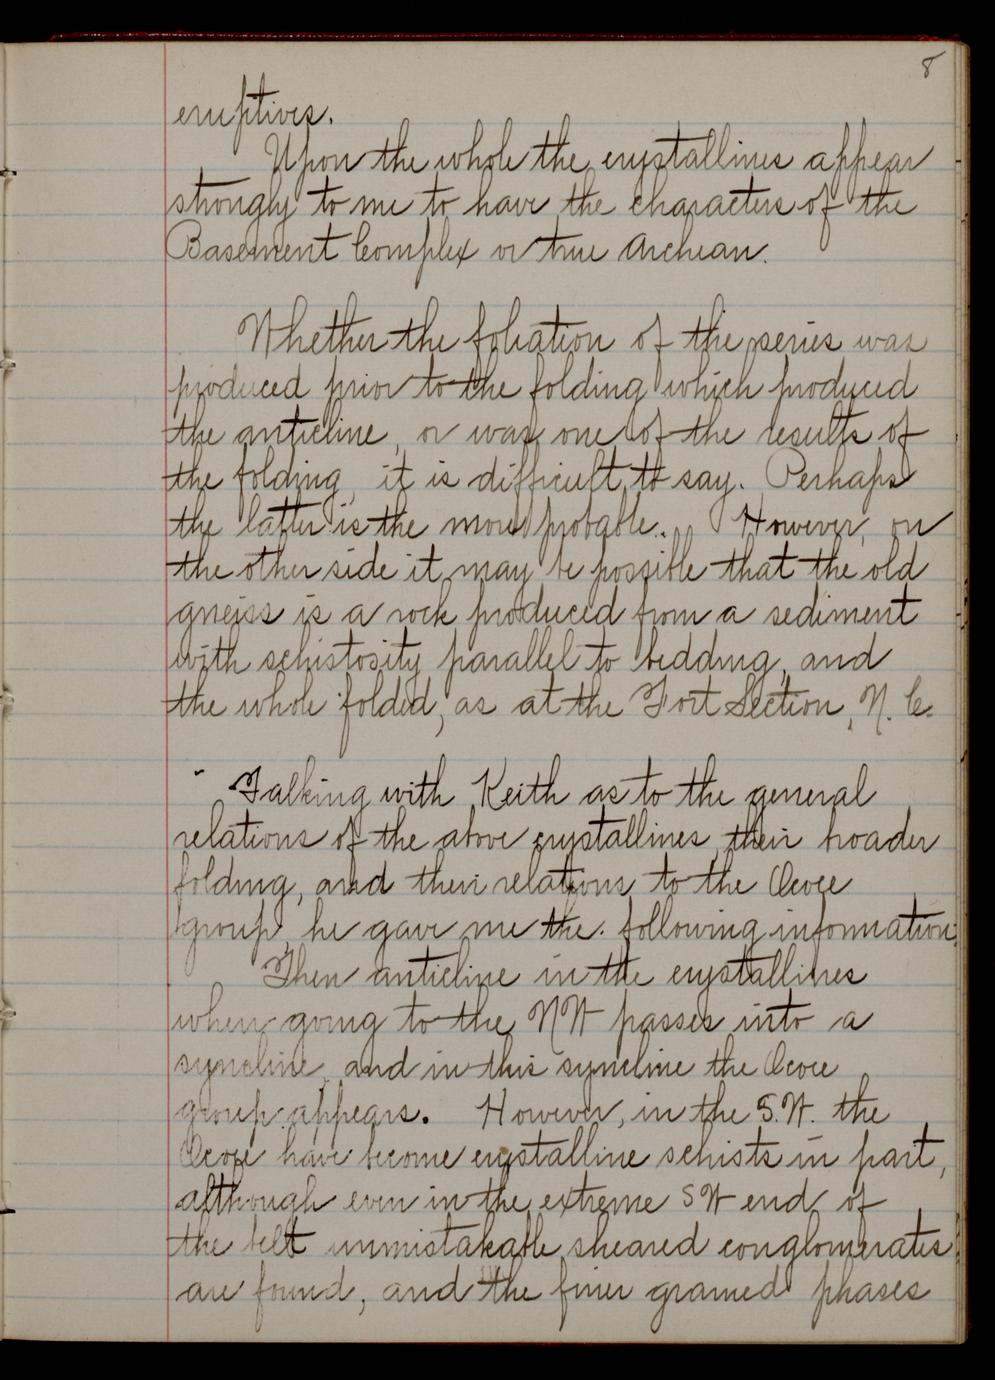 8
eruptives.
Upon the whole the crystallines appear
strongly to me to have the characters of the
Basement Complex or true Archean.
Whether the foliation of the series was
produced prior to the folding which produced
the anticline, or was one of the results of
the folding, it is difficult to say. Perhaps
the latter is the more probable. However, on
the other side it may be possible that the old
gneiss is a rock produced from a sediment
with schistosity parallel to bedding, and
the whole folded, as at the Fort Section, N. C.
Talking with Keith as to the general
relations of the above crystallines, their broader
folding, and their relations to the Ocoee
group, he gave me the following information.
Then anticline in the crystallines
when going to the NW passes into a
syncline, and in this syncline the Ocoee
group appears. However, in the S.W. the
Ocoee have become crystalline schists in part,
although even in the extreme SW end of
the belt unmistakable sheared conglomerates
are found, and the finer grained phases